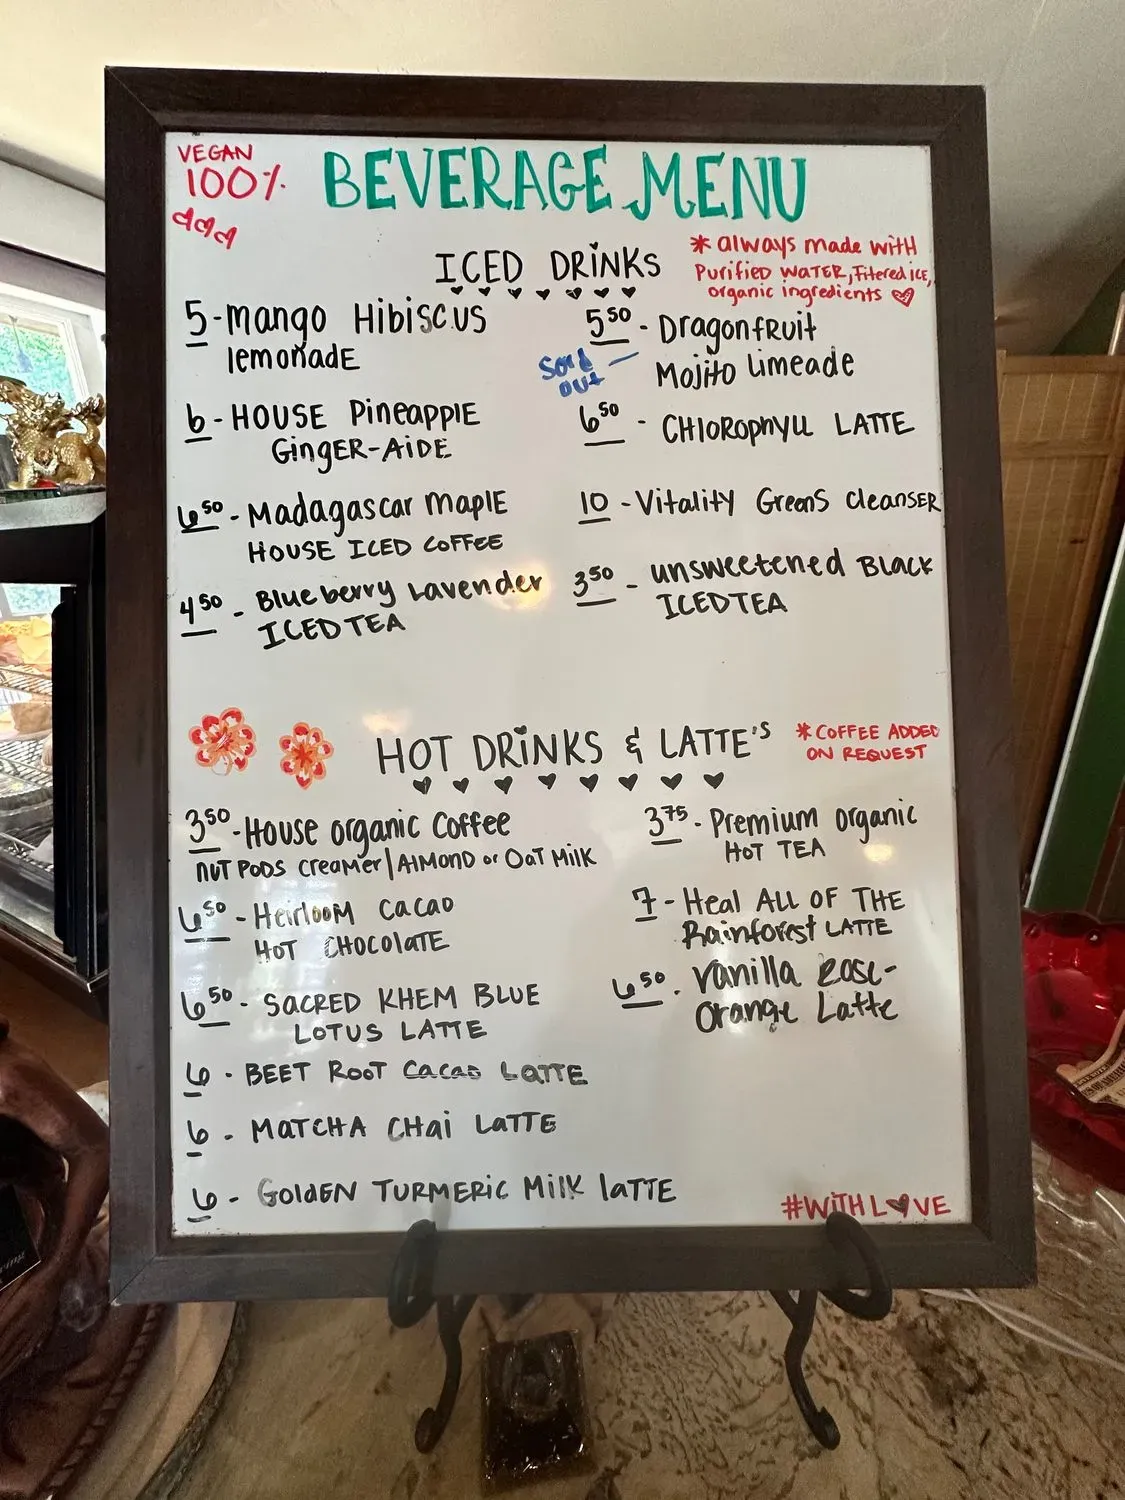 VEGAN
100%
BEVERAGE MENU
ICED DRINKS
* always made with
Purified WATER, Filtered ICE,
organic ingredients
5 - mango Hibiscus
lemonadE
6 - HOUSE PineapplE
GingER-AiDE
6.50 - Madagascar maplE
HOUSE ICED COFFEE
4.50 - Blueberry Lavender
ICED TEA
5.50 - DragonfRuit
Mojito Limeade
Sold
out
6.50 - CHlORophyll LATTE
10 - Vitality GreenS CleansER
3.50 - unsweetened BLACK
ICED TEA
HOT DRiNKS & LATTE'S
* COFFEE ADDED
ON REQUEST
3.50 - House organic Coffee
NUT PODS CREAMER / AlMOND or Oat Milk
6.50 - Heirloom Cacao
HOT CHOCOlatE
6.50 - SACRED KHEM BLUE
LOTUS LATTE
6 - BEET ROOT Cacao LATTE
6 - MATCHA CHai LATTE
6 - GoldEN TURMERIC Milk laTTE
3.75 - Premium organic
HOT TEA
7 - Heal ALL OF THE
Rainforest LATTE
6.50 - Vanilla Rose-
Orange Latte
#WiTH LOVE